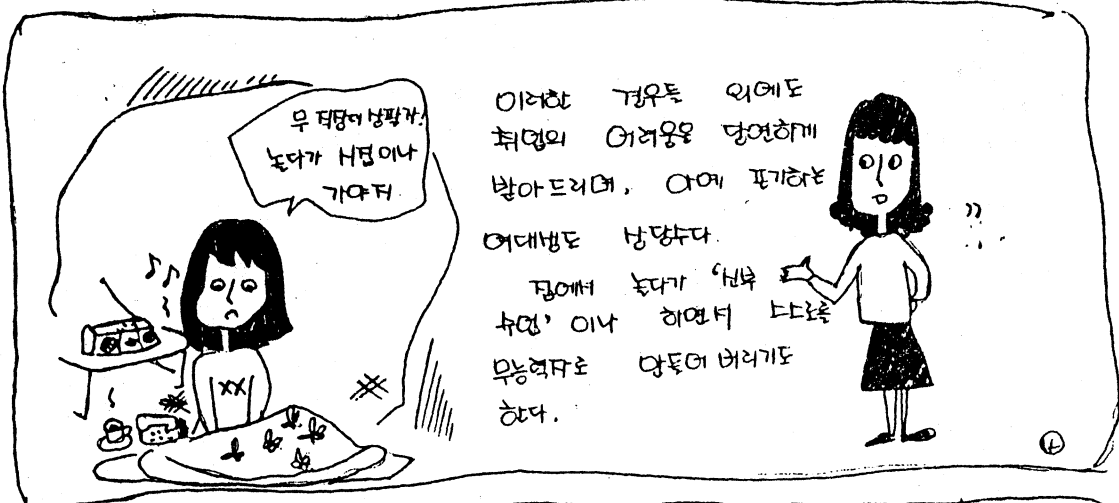 무 직장이 상팔자!
놀다가 시집이나
가야지
이러한 경우들 외에도
취업의 어려움을 당연하게
받아드리며, 아예 포기하는
여대생도 상당수다.
집에서 놀다가 '신부
수업' 이나 하면서 스스로를
무능력자로 만들어 버리기도
한다.
??